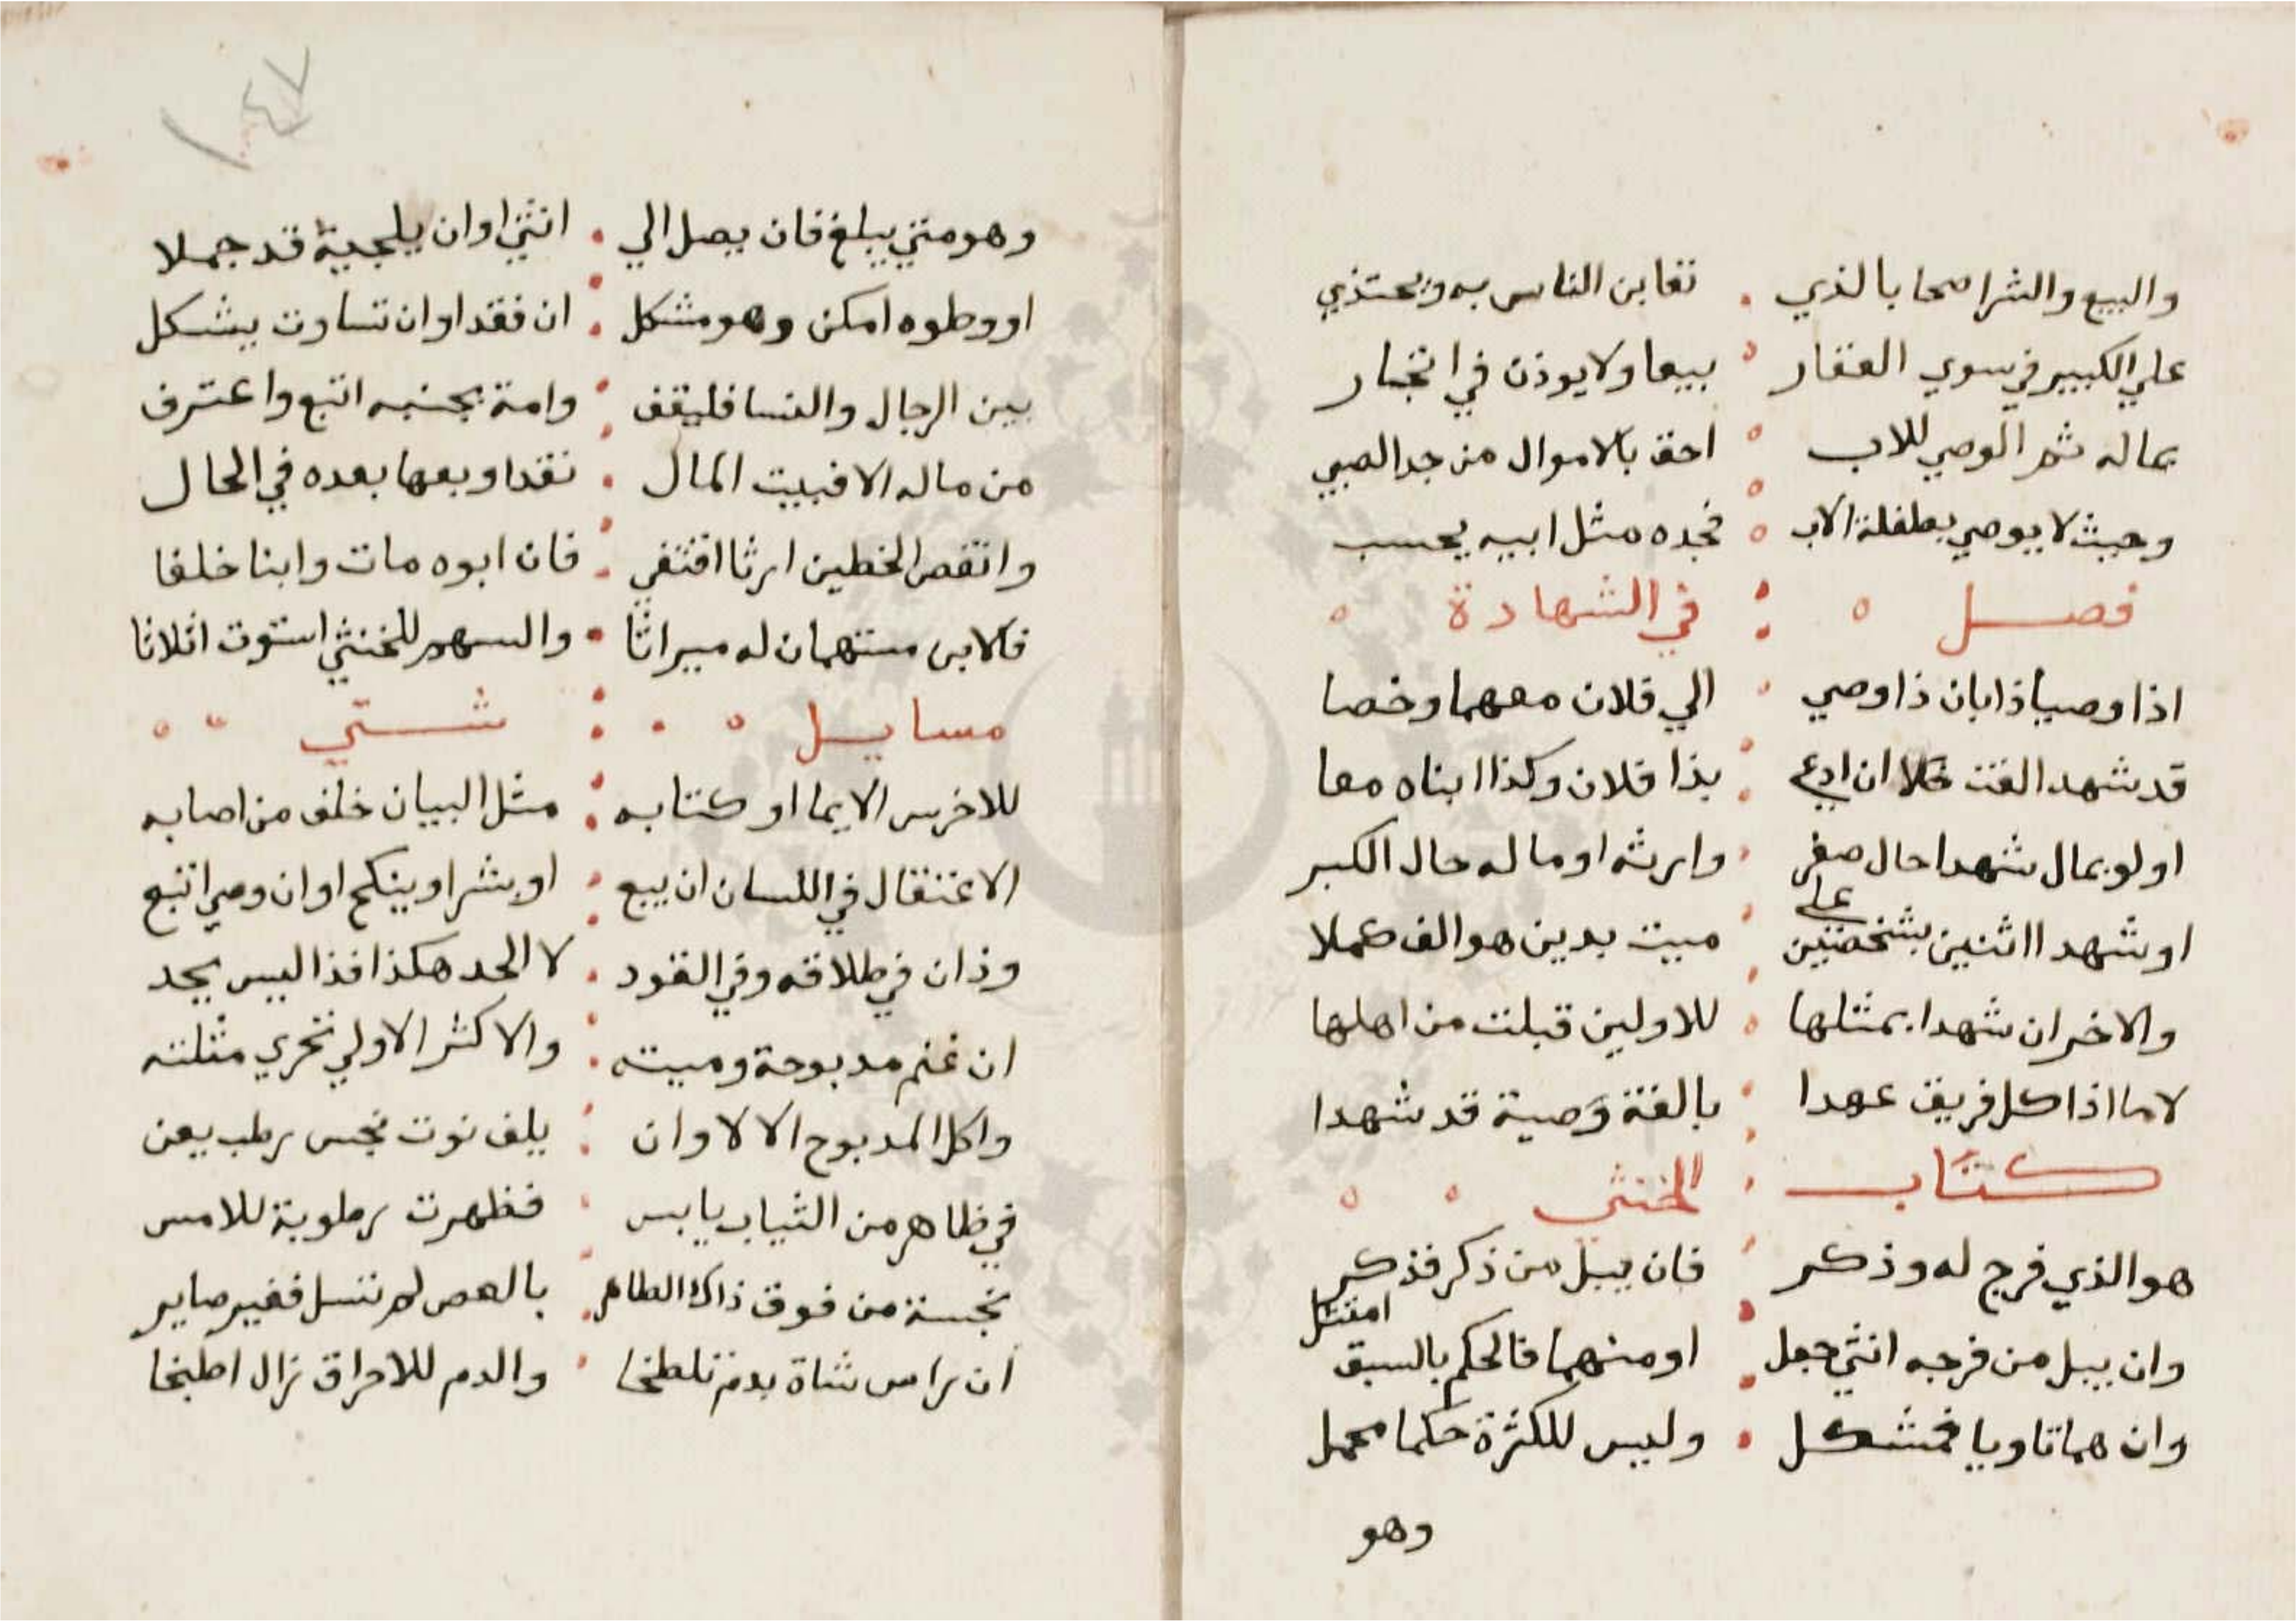 والبيع والشرا صحا بالذي . تغابن الناس به ويحتذي
علي الكبير في سوي العقار بيعا ولا يوذن في اتجار
بماله ثم الوصي للاب احق بالاموال من جد الصبي
وحيث لا يوصي بطفله الاب فجده مثل ابيه يحسب
فصل في الشهادة
اذا وصيا ذا بان ذا وصي الي فلان معهما وخصا
قد شهدا لغت خلا ان ادعي بذا فلان وكذا ابناه معا
او لو بمال شهدا حال صغر وارثه او ماله حال الكبر
او شهدا اثنين بشخصين علي ميت بدين هو الف كملا
والاخران شهدا بمثلها للاولين قبلت من اهلها
لا ما اذا كل فريق عهدا بالفتة وصية قد شهدا
كتاب الخنثي
هو الذي فرج له وذكر فان يبل من ذكر فذكر
وان يبل من فرجه انثي جعل او منهما فالحكم بالسبق امتثل
وان هما تاويا فمشكل . وليس للكثرة حكما محمل
وهو
١٤٧
وهو متي يبلغ فان يصل الي . انثي او ان بلحية قد جملا
او وطوه امكن وهو مشكل ان فقدا وان تساوت يشكل
بين الرجال والنسا فليقف وامة بجنبه اتبع واعترف
من ماله الا فبيت المال نقدا وبعها بعده في الحال
وانقص الخطين ارثا اقتفي فان ابوه مات وابنا خلفا
فالابن سهمان له ميراثا والسهم للخنثي استوت اثلاثا
مسايل شتي
للاخرس الايما او كتابه مثل البيان خلف من اصابه
الاعتقال في اللسان ان يبع او بشرا وينكح او ان وصي اتبع
وذان في طلاقه وفي القود . لا الحد هكذا فذا ليس يحد
ان غنم مدبوحة وميته . والاكثر الاولي تحري مثلته
واكل المدبوح الا لا وان يلف ثوب نجس رطب يعن
في ظاهر من الثياب يابس فظهرت رطوبة للامس
نجسة من فوق ذاك الطاهر بالعصر لم تسل فغير صاير
ان راس شاة بدم تلطخا والدم للاحراق زال اطبخا